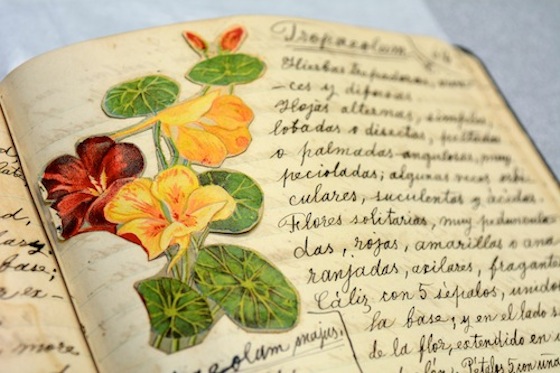 Tropaeolum
Hierbas trepadoras,
ces y difusas.
Hojas alternas, simples,
lobadas o disectas, peltadas
o palmadas-angulosas, muy
pecioladas; algunas veces orbi-
culares, suculentas y ácidas.
Flores solitarias, muy peduncula-
das, rojas, amarillas o ana-
ranjadas, axilares, fragantes
Cáliz con 5 sépalos, unidos
la base; y en el lado s
de la flor, extendido en
Pétalos 5 con una
aeolum majus.
d,
base;
ex-
more